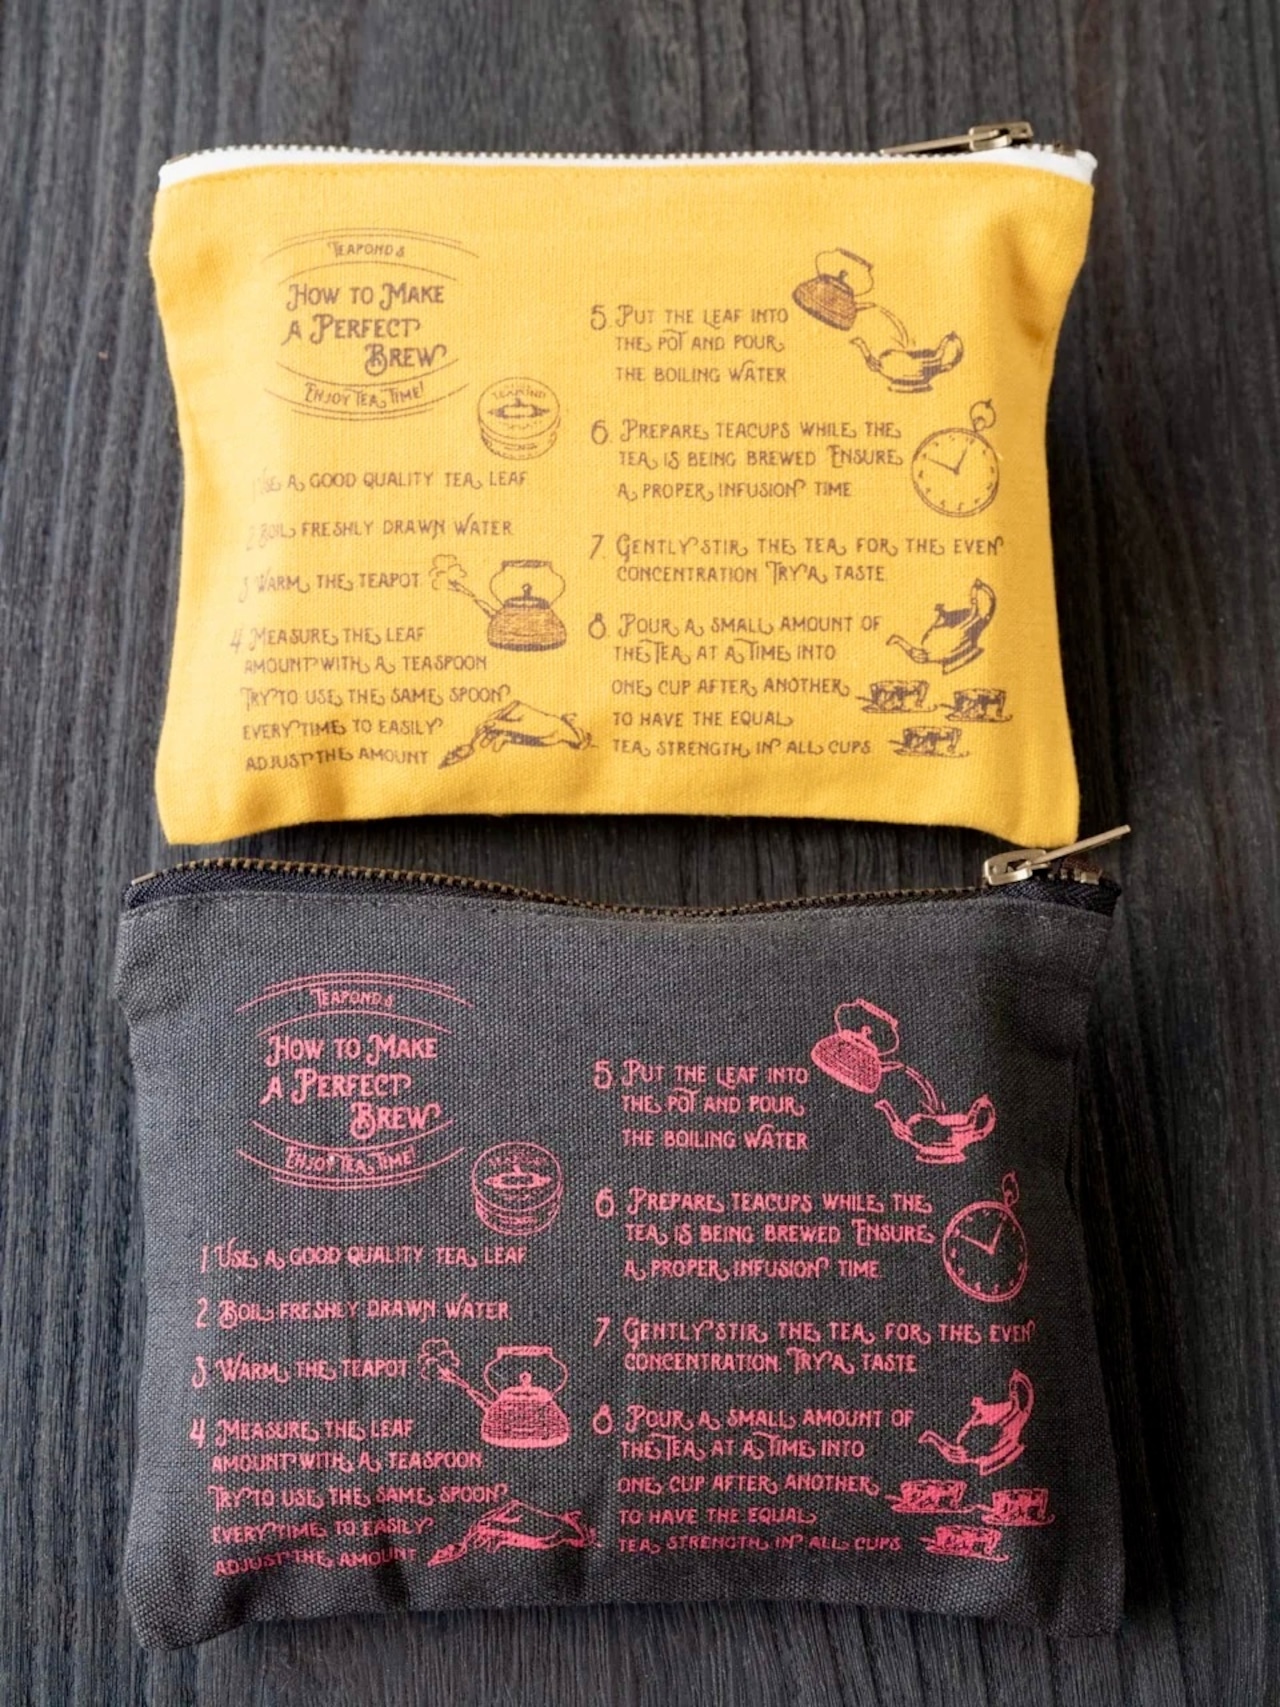 TEAPOND'S
HOW TO MAKE
A PERFECT
BREW
ENJOY TEA TIME!
TEAPOND
USE A GOOD QUALITY TEA LEAF
2 BOIL FRESHLY DRAWN WATER
3 WARM THE TEAPOT
4 MEASURE THE LEAF
AMOUNT WITH A TEASPOON
TRY TO USE THE SAME SPOON
EVERY TIME TO EASILY
ADJUST THE AMOUNT
5. PUT THE LEAF INTO
THE POT AND POUR
THE BOILING WATER
6. PREPARE TEACUPS WHILE THE
TEA IS BEING BREWED ENSURE
A PROPER INFUSION TIME
7. GENTLY STIR THE TEA FOR THE EVEN
CONCENTRATION TRY A TASTE
8. POUR A SMALL AMOUNT OF
THE TEA AT A TIME INTO
ONE CUP AFTER ANOTHER
TO HAVE THE EQUAL
TEA STRENGTH IN ALL CUPS
TEAPOND'S
HOW TO MAKE
A PERFECT
BREW
ENJOY TEA TIME!
1 USE A GOOD QUALITY TEA LEAF
2 BOIL FRESHLY DRAWN WATER
3 WARM THE TEAPOT
4 MEASURE THE LEAF
AMOUNT WITH A TEASPOON
TRY TO USE THE SAME SPOON
EVERY TIME TO EASILY
ADJUST THE AMOUNT
5 PUT THE LEAF INTO
THE POT AND POUR
THE BOILING WATER
6 PREPARE TEACUPS WHILE THE
TEA IS BEING BREWED ENSURE
A PROPER INFUSION TIME
7 GENTLY STIR THE TEA FOR THE EVEN
CONCENTRATION TRY A TASTE
8 POUR A SMALL AMOUNT OF
THE TEA AT A TIME INTO
ONE CUP AFTER ANOTHER
TO HAVE THE EQUAL
TEA STRENGTH IN ALL CUPS